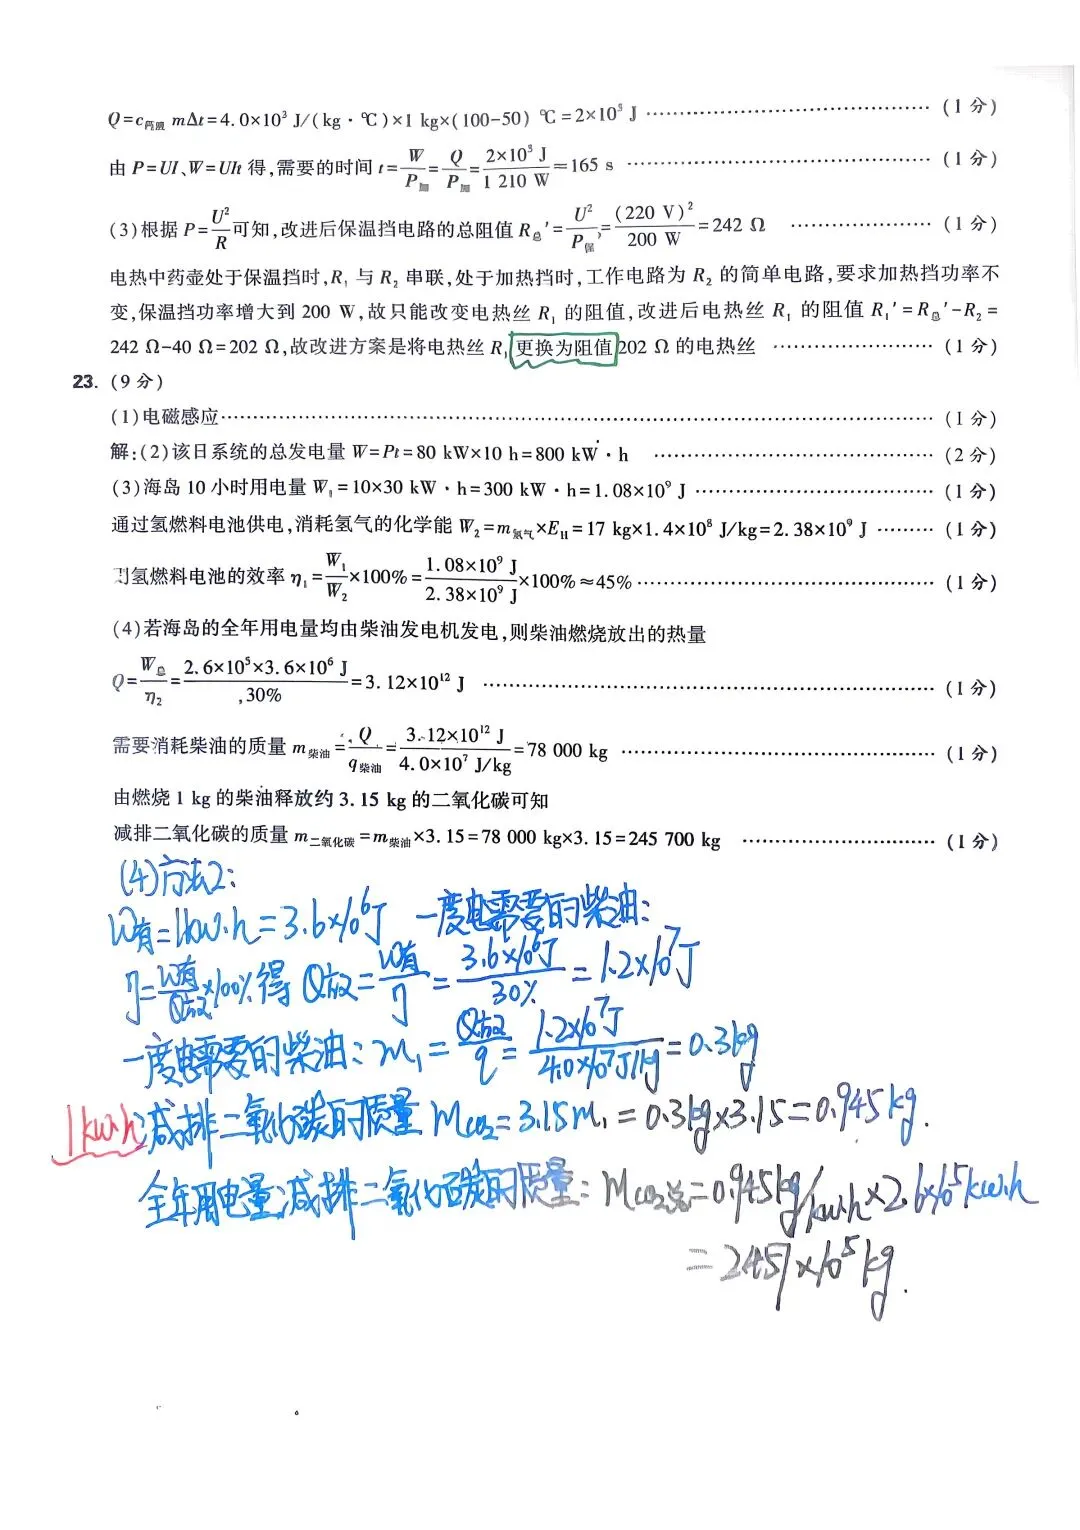 Q=c药液 mΔt=4.0×10³ J/(kg·℃)×1 kg×(100-50) ℃=2×10⁵ J ……(1分)
由 P=UI、W=UIt 得,需要的时间 t=W/P加=Q/P加=2×10⁵ J/1 210 W≈165 s ……(1分)
(3)根据 P=U²/R可知,改进后保温挡电路的总阻值 R总′=U²/P保′=(220 V)²/200 W=242 Ω ……(1分)
电热中药壶处于保温挡时,R₁ 与 R₂ 串联,处于加热挡时,工作电路为 R₂ 的简单电路,要求加热挡功率不
变,保温挡功率增大到 200 W,故只能改变电热丝 R₁ 的阻值,改进后电热丝 R₁ 的阻值 R₁′=R总′-R₂=
242 Ω-40 Ω=202 Ω,故改进方案是将电热丝 R₁更换为阻值202 Ω 的电热丝 ……(1分)
23. (9分)
(1)电磁感应……(1分)
解:(2)该日系统的总发电量 W=Pt=80 kW×10 h=800 kW·h ……(2分)
(3)海岛 10 小时用电量 W₁=10×30 kW·h=300 kW·h=1.08×10⁹ J ……(1分)
通过氢燃料电池供电,消耗氢气的化学能 W₂=m氢气×EH=17 kg×1.4×10⁸ J/kg=2.38×10⁹ J ……(1分)
则氢燃料电池的效率 η₁=W₁/W₂×100%=1.08×10⁹ J/2.38×10⁹ J×100%≈45% ……(1分)
(4)若海岛的全年用电量均由柴油发电机发电,则柴油燃烧放出的热量
Q=W总/η₂=2.6×10⁵×3.6×10⁶ J/30%=3.12×10¹² J ……(1分)
需要消耗柴油的质量 m柴油=Q/q柴油=3.12×10¹² J/4.0×10⁷ J/kg=78 000 kg ……(1分)
由燃烧 1 kg 的柴油释放约 3.15 kg 的二氧化碳可知
减排二氧化碳的质量 m二氧化碳=m柴油×3.15=78 000 kg×3.15=245 700 kg ……(1分)
(4)方法2:
W有=1kw.h=3.6×10⁶J 一度电需要的柴油:
η=W有/Q放×100%得 Q放=W有/η=3.6×10⁶J/30%=1.2×10⁷J
一度电需要的柴油:m₁=Q放/q=1.2×10⁷J/4.0×10⁷J/kg=0.3kg
1kw.h减排二氧化碳的质量 mco₂=3.15m₁=0.3kg×3.15=0.945kg.
全年用电量减排二氧化碳的质量:mco₂总=0.945kg/kw.h×2.6×10⁵kw.h
=2.457×10⁵kg.